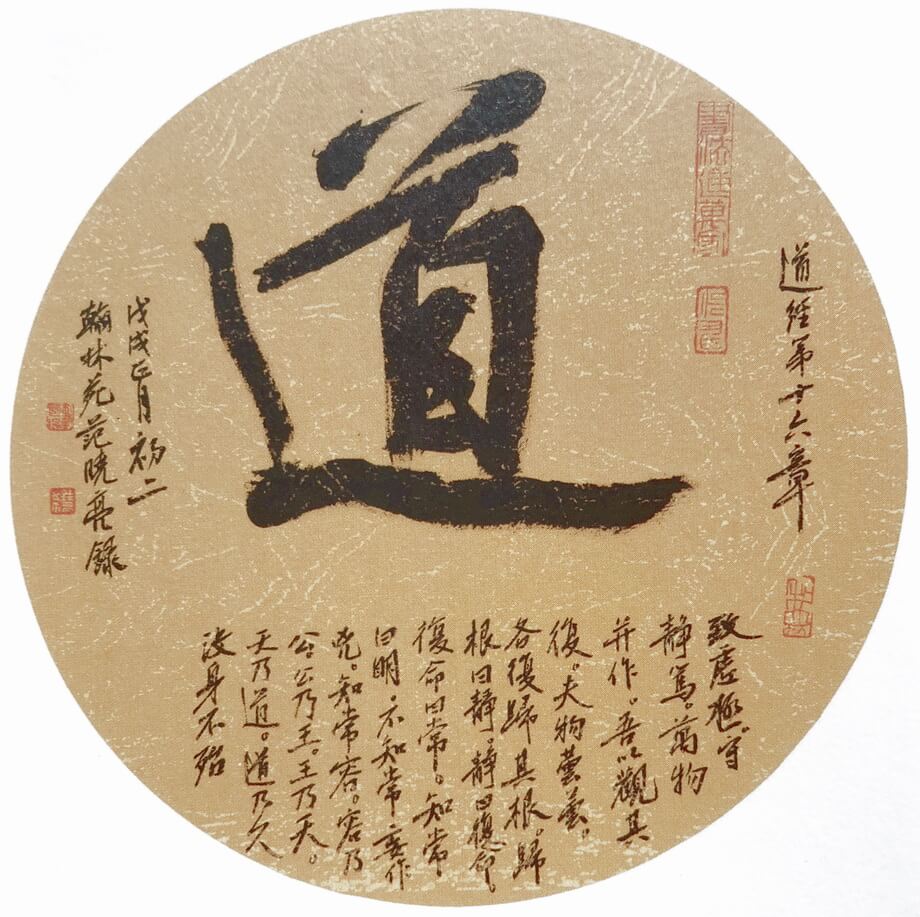 道
道經第十六章
致虛極。守
靜篤。萬物
并作。吾以觀其
復。夫物蕓蕓。
各復歸其根。歸
根曰靜。靜曰復命。
復命曰常。知常
曰明。不知常妄作
兇。知常容。容乃
公。公乃王。王乃天。
天乃道。道乃久
沒身不殆
戊戌正月初二
翰林苑范晓亮錄
書法進萬家